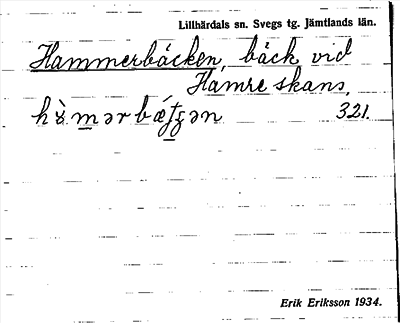 Lillhärdals sn. Svegs tg. Jämtlands län.
Hammerbäcken, bäck vid
Hamre skans,
321.
Erik Eriksson 1934.